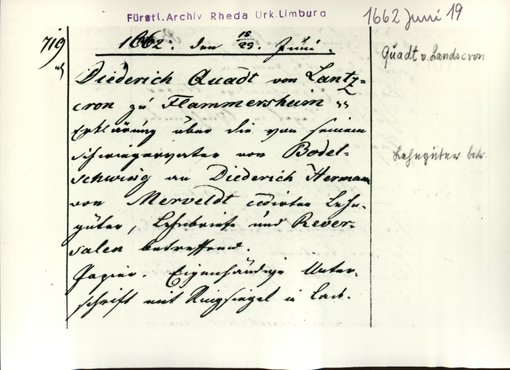 Fürstl. Archiv Rheda Urk. Limburg
1662 Juni 19
719
1662. den 19/29. Juni.
Quadt v. Landscron
Diederich Quadt von Lantz-
cron zu Flammersheim
Erklärung über die von seinem
Schwiegervater von Bodel-
schwing an Diederich Herman
von Merveldt cedirten Lehn-
güter, Lehnbriefe und Rever-
salen betreffend.
Lehngüter betr.
Papier. Eigenhändige Unter-
schrift mit Ringsiegel in Lack.